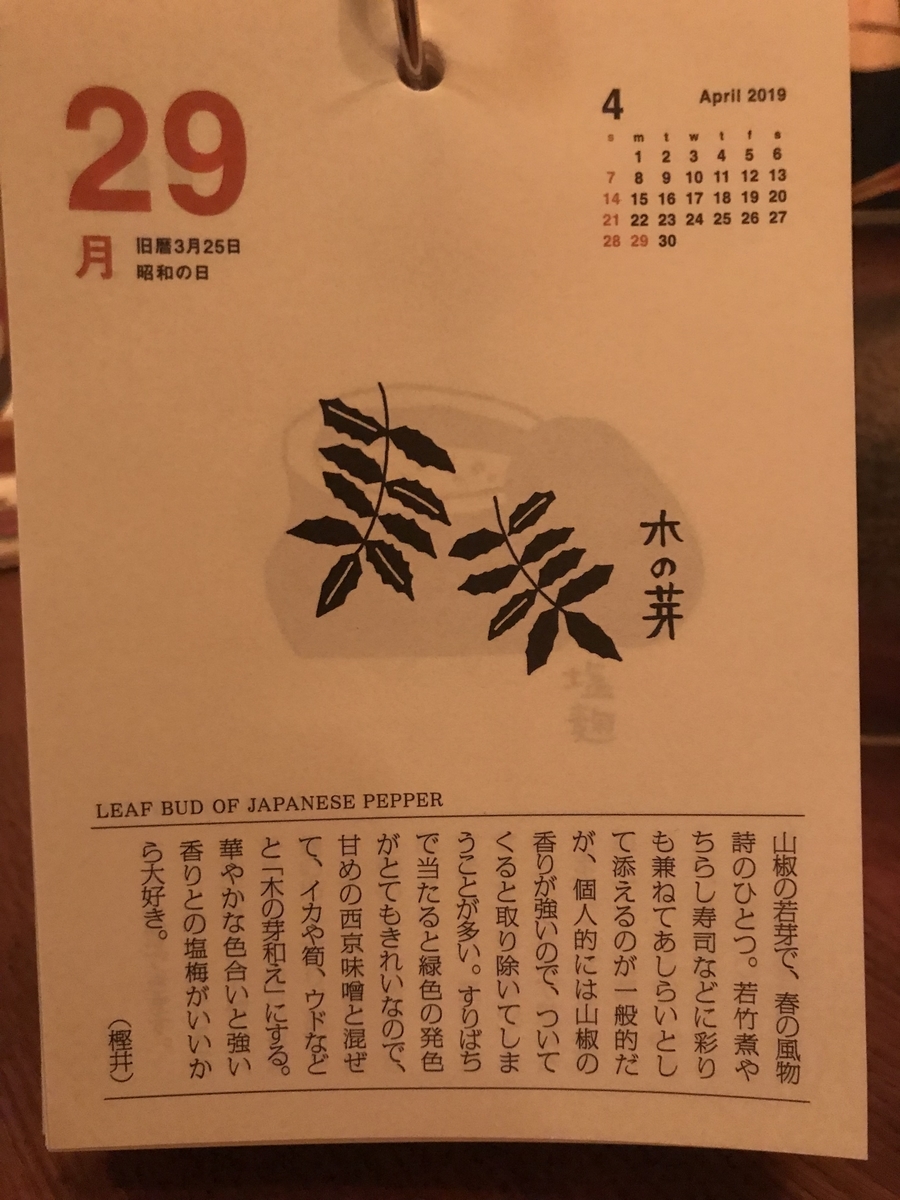 29
月
旧暦3月25日
昭和の日
4
April 2019
s m t w t f s
1 2 3 4 5 6
7 8 9 10 11 12 13
14 15 16 17 18 19 20
21 22 23 24 25 26 27
28 29 30
木の芽
塩麹
LEAF BUD OF JAPANESE PEPPER
山椒の若芽で、春の風物
詩のひとつ。若竹煮や
ちらし寿司などに彩り
も兼ねてあしらいとし
て添えるのが一般的だ
が、個人的には山椒の
香りが強いので、ついて
くると取り除いてしま
うことが多い。すりばち
で当たると緑色の発色
がとてもきれいなので、
甘めの西京味噌と混ぜ
て、イカや筍、ウドなど
と「木の芽和え」にする。
華やかな色合いと強い
香りとの塩梅がいいか
ら大好き。
（樫井）